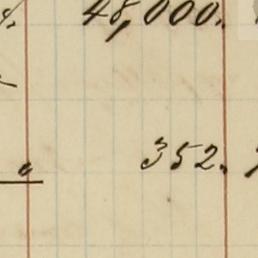 48,000.
352.